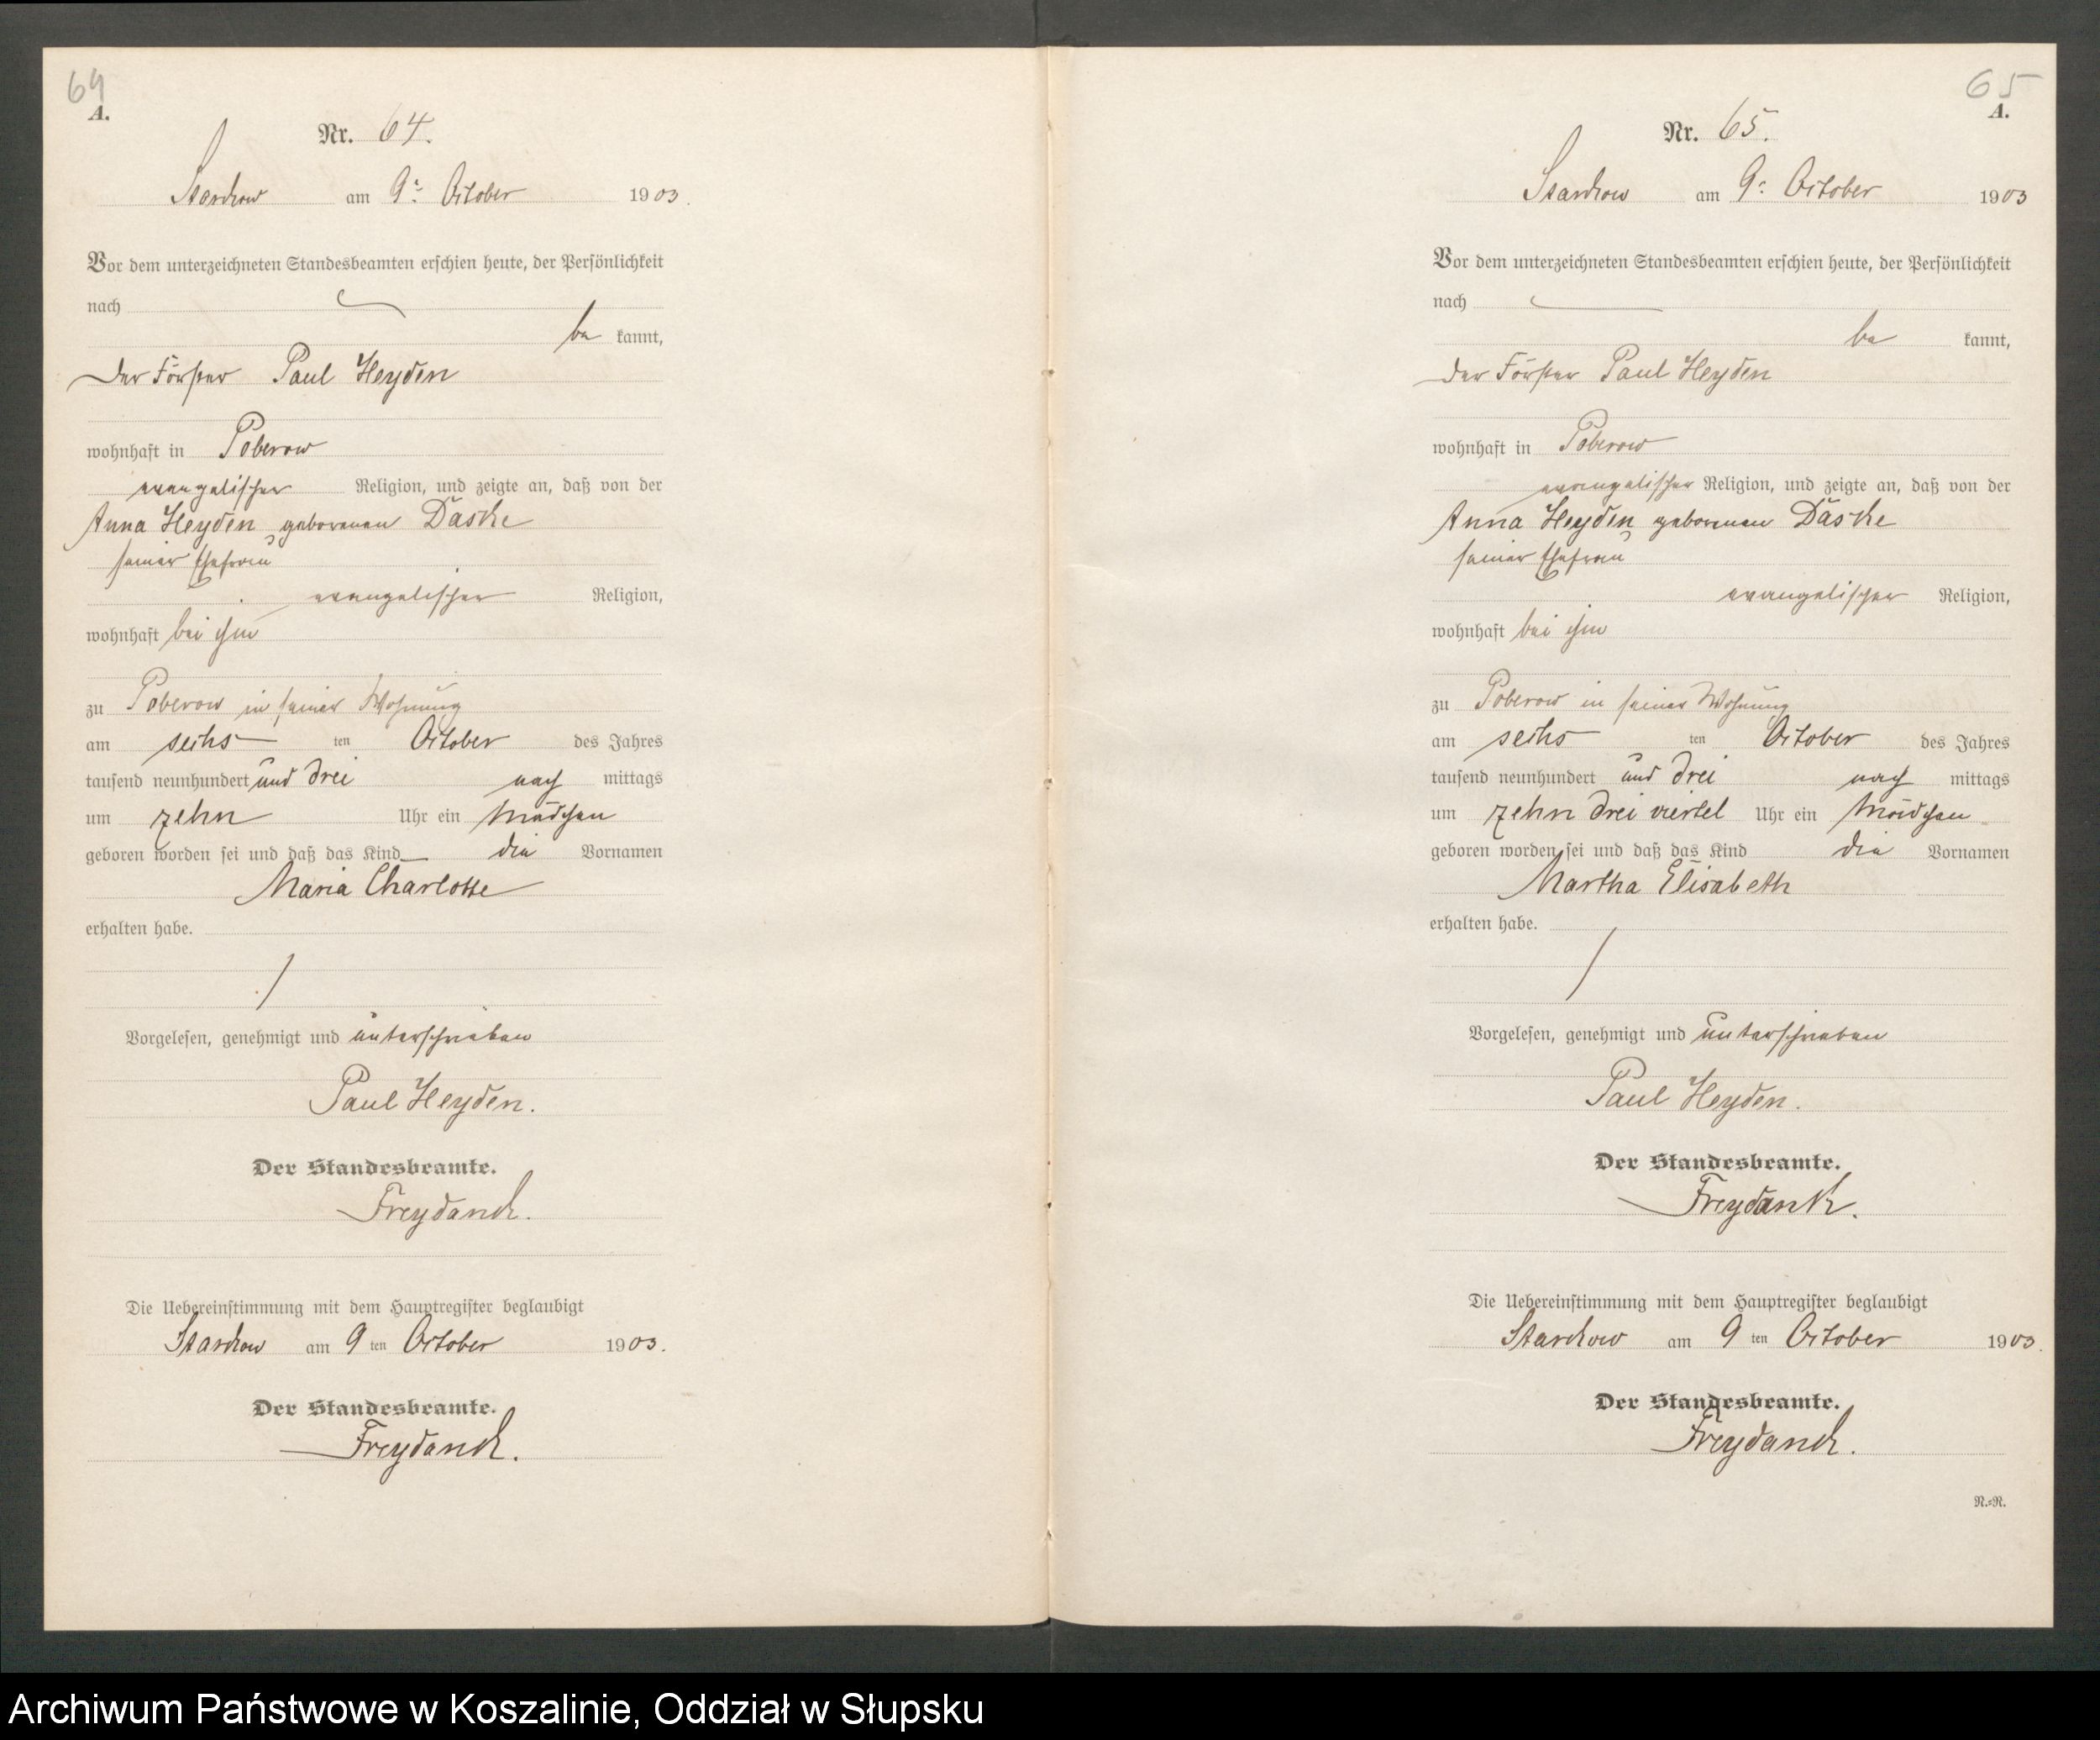 64
A.
Nr. 64.
Starckow am 9ᵗ October 1903.
Vor dem unterzeichneten Standesbeamten erschien heute, der Persönlichkeit
nach
be kannt,
der Förster Paul Heyden
wohnhaft in Poberow
evangelischer Religion, und zeigte an, daß von der
Anna Heyden geborenen Däske
seiner Ehefrau
evangelischer Religion,
wohnhaft bei ihm
zu Poberow in seiner Wohnung
am sechs ten October des Jahres
tausend neunhundert und drei nach mittags
um zehn Uhr ein Mädchen
geboren worden sei und daß das Kind die Vornamen
Maria Charlotte
erhalten habe.
Vorgelesen, genehmigt und unterschrieben
Paul Heyden.
Der Standesbeamte.
Freydanck.
Die Uebereinstimmung mit dem Hauptregister beglaubigt
Starckow am 9 ten October 1903.
Der Standesbeamte.
Freydanck.
65
A.
Nr. 65.
Starckow am 9ᵗ October 1903
Vor dem unterzeichneten Standesbeamten erschien heute, der Persönlichkeit
nach
be kannt,
der Förster Paul Heyden
wohnhaft in Poberow
evangelischer Religion, und zeigte an, daß von der
Anna Heyden geborenen Däske
seiner Ehefrau
evangelischer Religion,
wohnhaft bei ihm
zu Poberow in seiner Wohnung
am sechs ten October des Jahres
tausend neunhundert und drei nach mittags
um zehn drei viertel Uhr ein Mädchen
geboren worden sei und daß das Kind die Vornamen
Martha Elisabeth
erhalten habe.
Vorgelesen, genehmigt und unterschrieben
Paul Heyden.
Der Standesbeamte.
Freydank.
Die Uebereinstimmung mit dem Hauptregister beglaubigt
Starckow am 9 ten October 1903.
Der Standesbeamte.
Freydanck.
N.=N.
Archiwum Państwowe w Koszalinie, Oddział w Słupsku